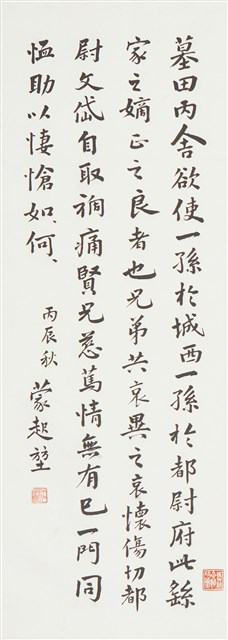 墓田丙舍欲使一孫於城西一孫於都尉府此繇
家之嫡正之良者也兄弟共哀異之哀懷傷切都
尉文岱自取禍痛賢兄慈篤情無有已一門同
恤助以悽愴如、何、
丙辰秋 蒙